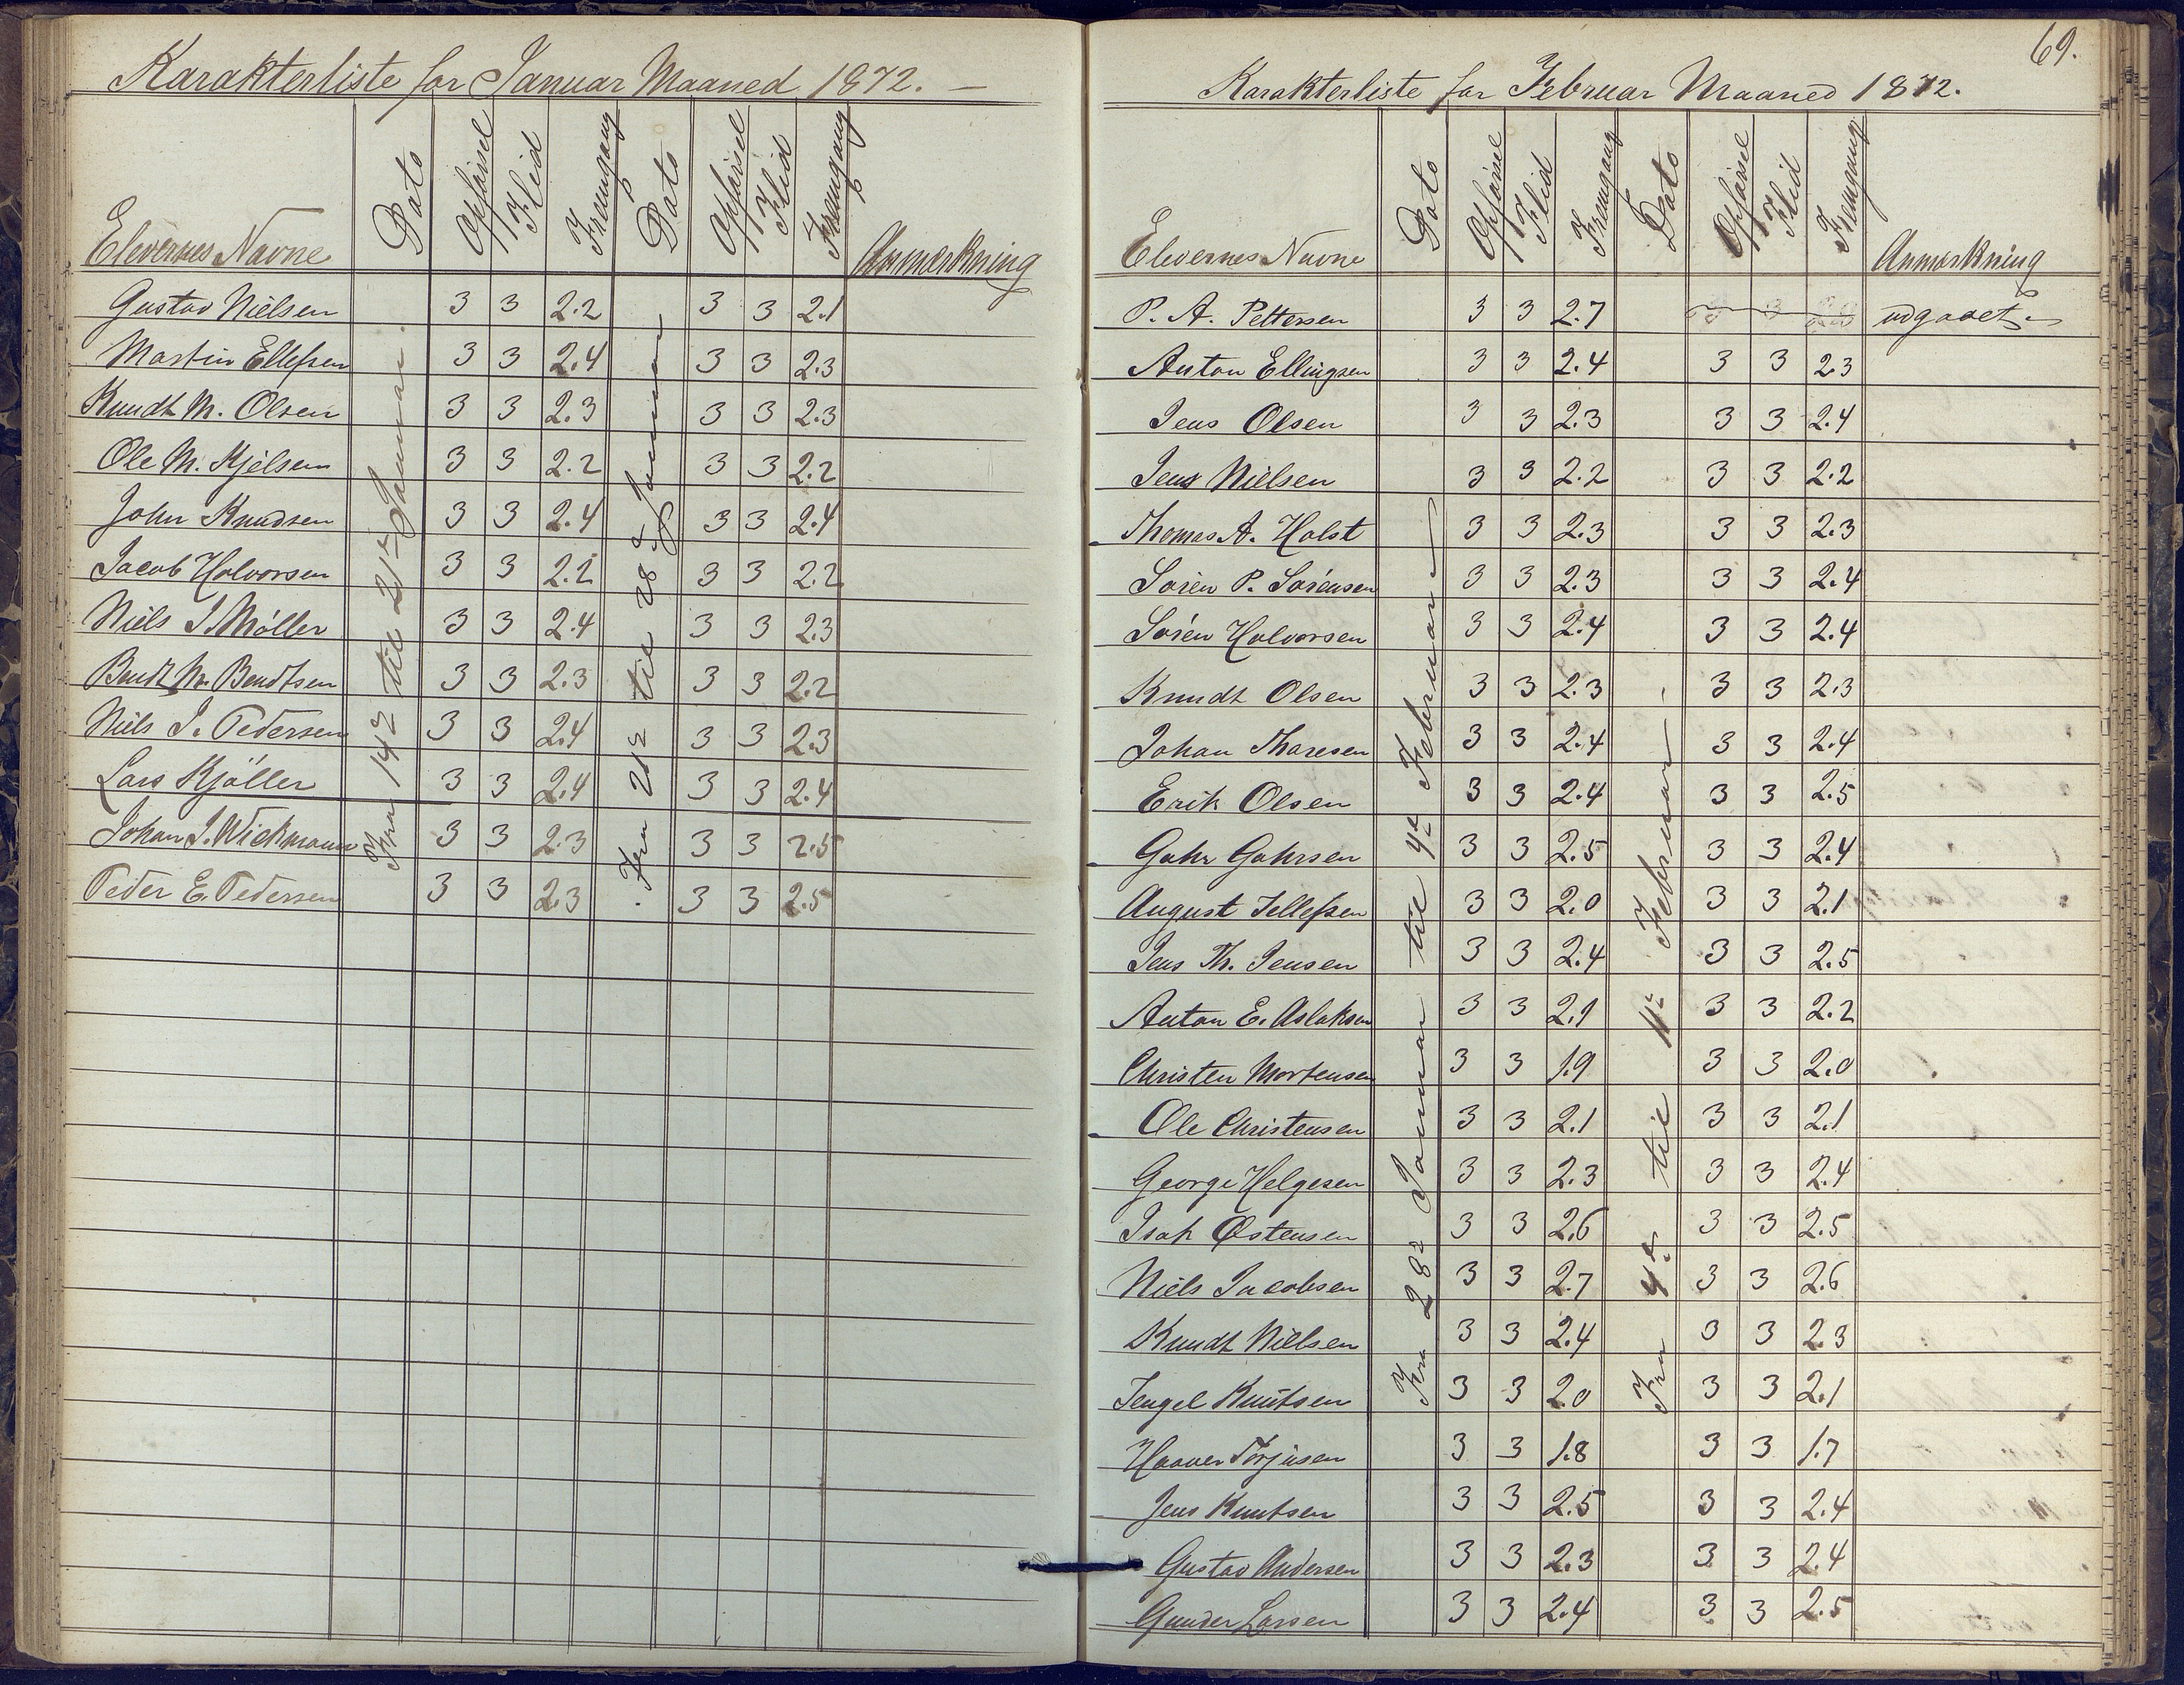 Karakterliste for Januar Maaned 1872. —
Elevernes Navne Dato Opførsel Flid Fremgang Dato Opførsel Flid Fremgang Anmærkning
Fra 14de til 21de Januar.
Fra 21de til 28de Januar
Gustav Nielsen 3 3 2.2 3 3 2.1
Martin Ellefsen 3 3 2.4 3 3 2.3
Knudt M. Olsen 3 3 2.3 3 3 2.3
Ole M. Kjelsen 3 3 2.2 3 3 2.2
John Knudsen 3 3 2.4 3 3 2.4
Jacob Halvorsen 3 3 2.2 3 3 2.2
Niels J. Møller 3 3 2.4 3 3 2.3
Bendt M. Bendtsen 3 3 2.3 3 3 2.2
Niels J. Pedersen 3 3 2.4 3 3 2.3
Lars Kjøller 3 3 2.4 3 3 2.4
Johan J. Wickmann 3 3 2.3 3 3 2.5
Peder E. Pedersen 3 3 2.3 3 3 2.5
69.
Karakterliste for Februar Maaned 1872.
Elevernes Navne Dato Opførsel Flid Fremgang Dato Opførsel Flid Fremgang Anmærkning
Fra 28de Januar til 4de Februar
Fra 4de til 11te Februar.
P. A. Pettersen 3 3 2.7 udgaaet
Anton Ellingsen 3 3 2.4 3 3 2.3
Jens Olsen 3 3 2.3 3 3 2.4
Jens Nielsen 3 3 2.2 3 3 2.2
Thomas A. Holst 3 3 2.3 3 3 2.3
Søren P. Sørensen 3 3 2.3 3 3 2.4
Søren Halvorsen 3 3 2.4 3 3 2.4
Knudt Olsen 3 3 2.3 3 3 2.3
Johan Thoresen 3 3 2.4 3 3 2.4
Erik Olsen 3 3 2.4 3 3 2.5
Gahr Gahrsen 3 3 2.5 3 3 2.4
August Tellefsen 3 3 2.0 3 3 2.1
Jens Th. Jensen 3 3 2.4 3 3 2.5
Anton E. Aslaksen 3 3 2.1 3 3 2.2
Christen Mortensen 3 3 1.9 3 3 2.0
Ole Christensen 3 3 2.1 3 3 2.1
George Helgesen 3 3 2.3 3 3 2.4
Isak Østensen 3 3 2.6 3 3 2.5
Niels Jacobsen 3 3 2.7 3 3 2.6
Knudt Nielsen 3 3 2.4 3 3 2.3
Tengel Knutsen 3 3 2.0 3 3 2.1
Haaver Torjusen 3 3 1.8 3 3 1.7
Jens Knutsen 3 3 2.5 3 3 2.4
Gustav Andersen 3 3 2.3 3 3 2.4
Gunder Larsen 3 3 2.4 3 3 2.5